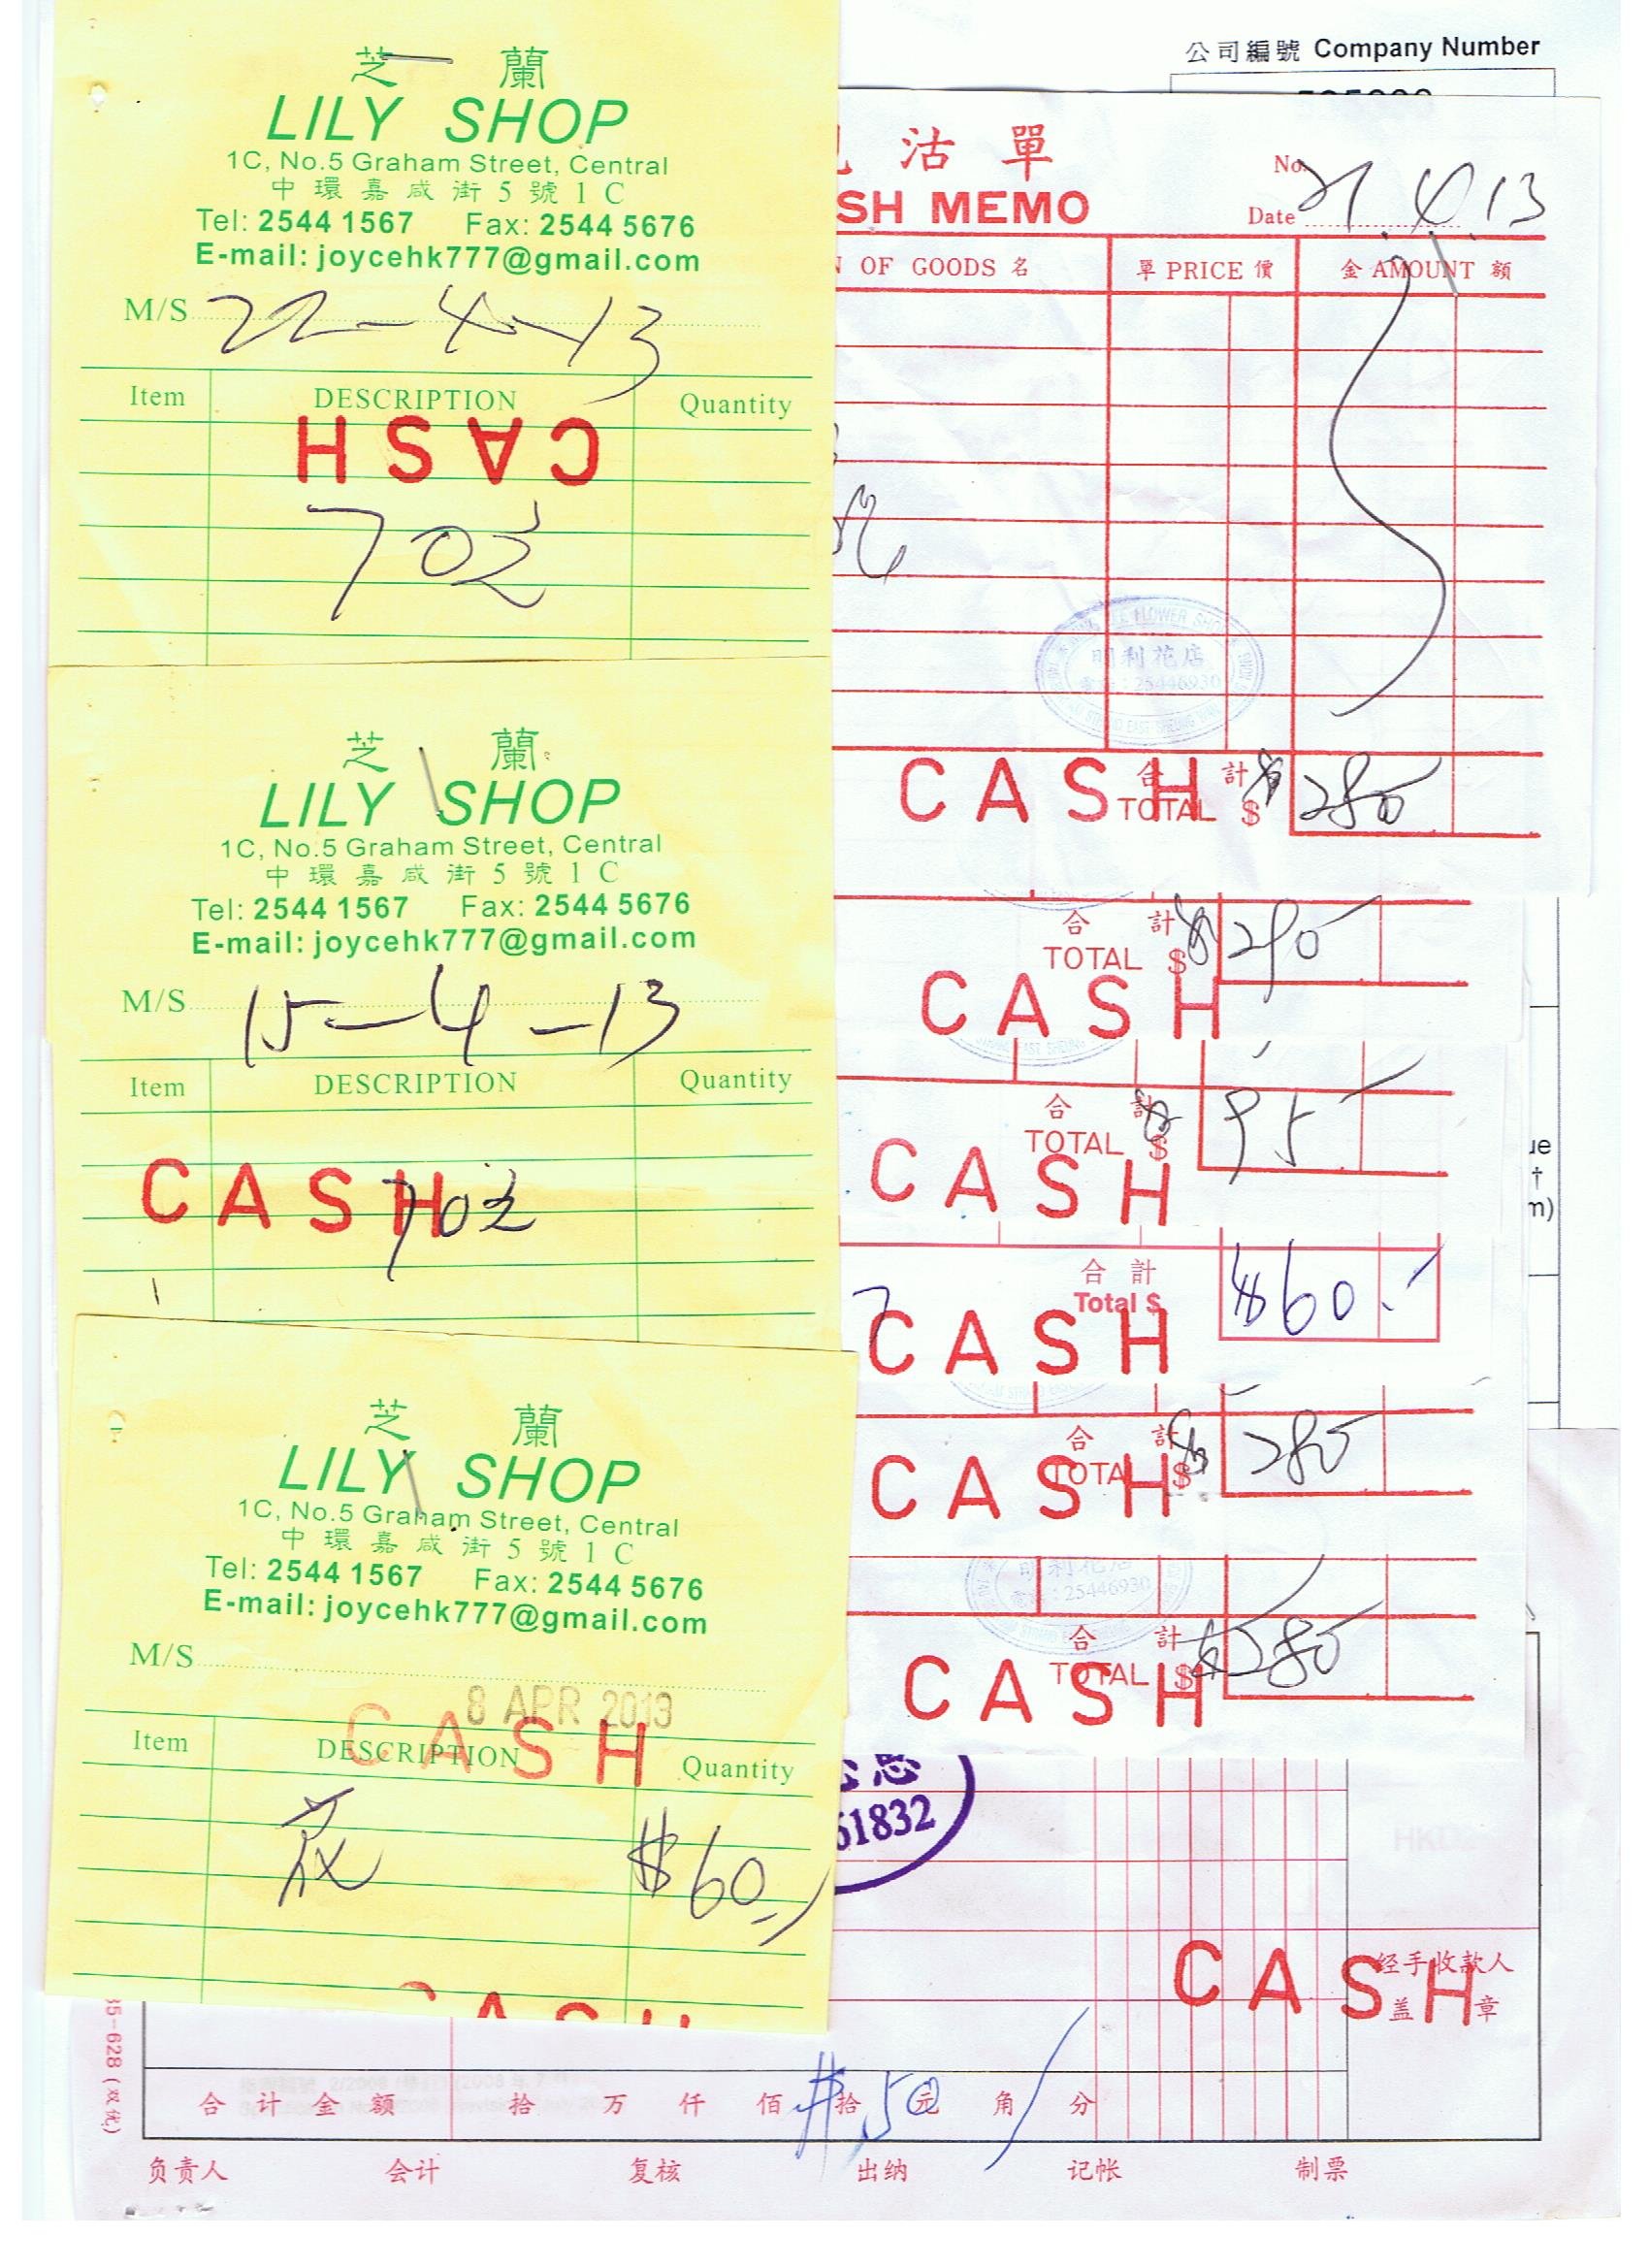 芝 蘭
LILY SHOP
1C, No.5 Graham Street, Central
中環嘉咸街5號1C
Tel: 2544 1567 Fax: 2544 5676
E-mail: joycehk777@gmail.com
M/S 22-4-13
Item DESCRIPTION Quantity
CASH
702
芝 蘭
LILY SHOP
1C, No.5 Graham Street, Central
中環嘉咸街5號1C
Tel: 2544 1567 Fax: 2544 5676
E-mail: joycehk777@gmail.com
M/S 15-4-13
Item DESCRIPTION Quantity
CASH
702
芝 蘭
LILY SHOP
1C, No.5 Graham Street, Central
中環嘉咸街5號1C
Tel: 2544 1567 Fax: 2544 5676
E-mail: joycehk777@gmail.com
M/S
8 APR 2013
CASH
Item DESCRIPTION Quantity
$60
CASH
公司編號 Company Number
沽單
SH MEMO
No.
Date 4.13
OF GOODS 名 單 PRICE 價 金 AMOUNT 額
明利花店
25446930
合計
CASH
TOTAL $ 280
合計
TOTAL $ 290
CASH
合計
TOTAL $ 95
CASH
合計
Total $ $60.
CASH
合計
TOTAL $ 280
CASH
明利花店
25446930
合計
TOTAL $ 280
CASH
61832
CASH
经手收款人
盖章
合计金额 拾 万 仟 佰 拾 元 角 分
$50
负责人 会计 复核 出纳 记帐 制票
35-628